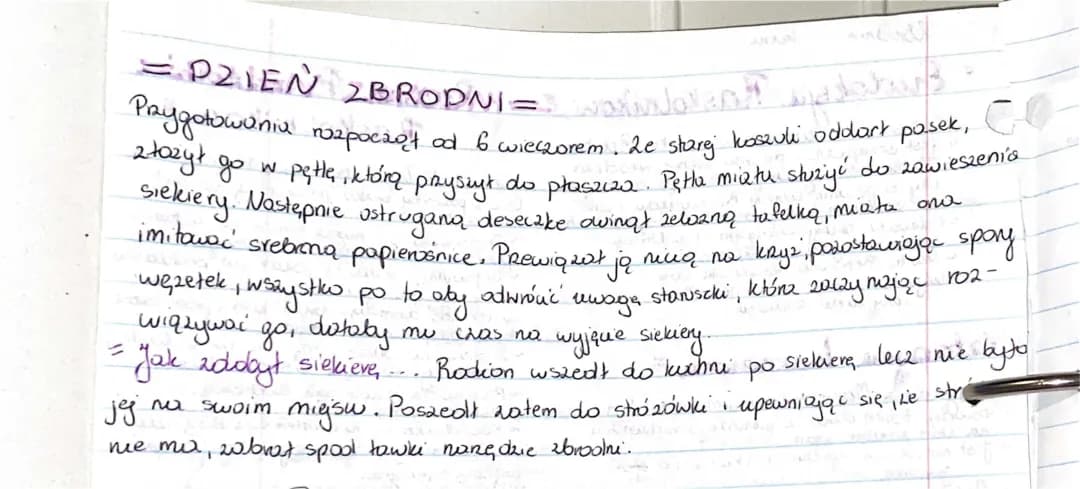 = DZIEŃ ZBRODNI =
Przygotowania rozpoczął od 6 wieczorem. Ze starej koszuli oddart pasek,
złożył go w pętlę, którą przyszył do płaszcza. Pętla miała służyć do zawieszenia
siekiery. Następnie ostruganą deseczkę owinął żelazną tafelką, miała ona
imitować srebrną papierośnicę. Przewiązał ją nicią na krzyż, pozostawiając spory
węzełek, wszystko po to aby odwrócić uwagę staruszki, która zaczynając roz-
wiązywać go, dałaby mu czas na wyjęcie siekiery.
= Jak zdobył siekierę ... Rodion wszedł do kuchni po siekierę, lecz nie było
jej na swoim miejscu. Poszedł zatem do stróżówki i upewniając się, że
nie ma, zabrał spod ławki narzędzie zbrodni.